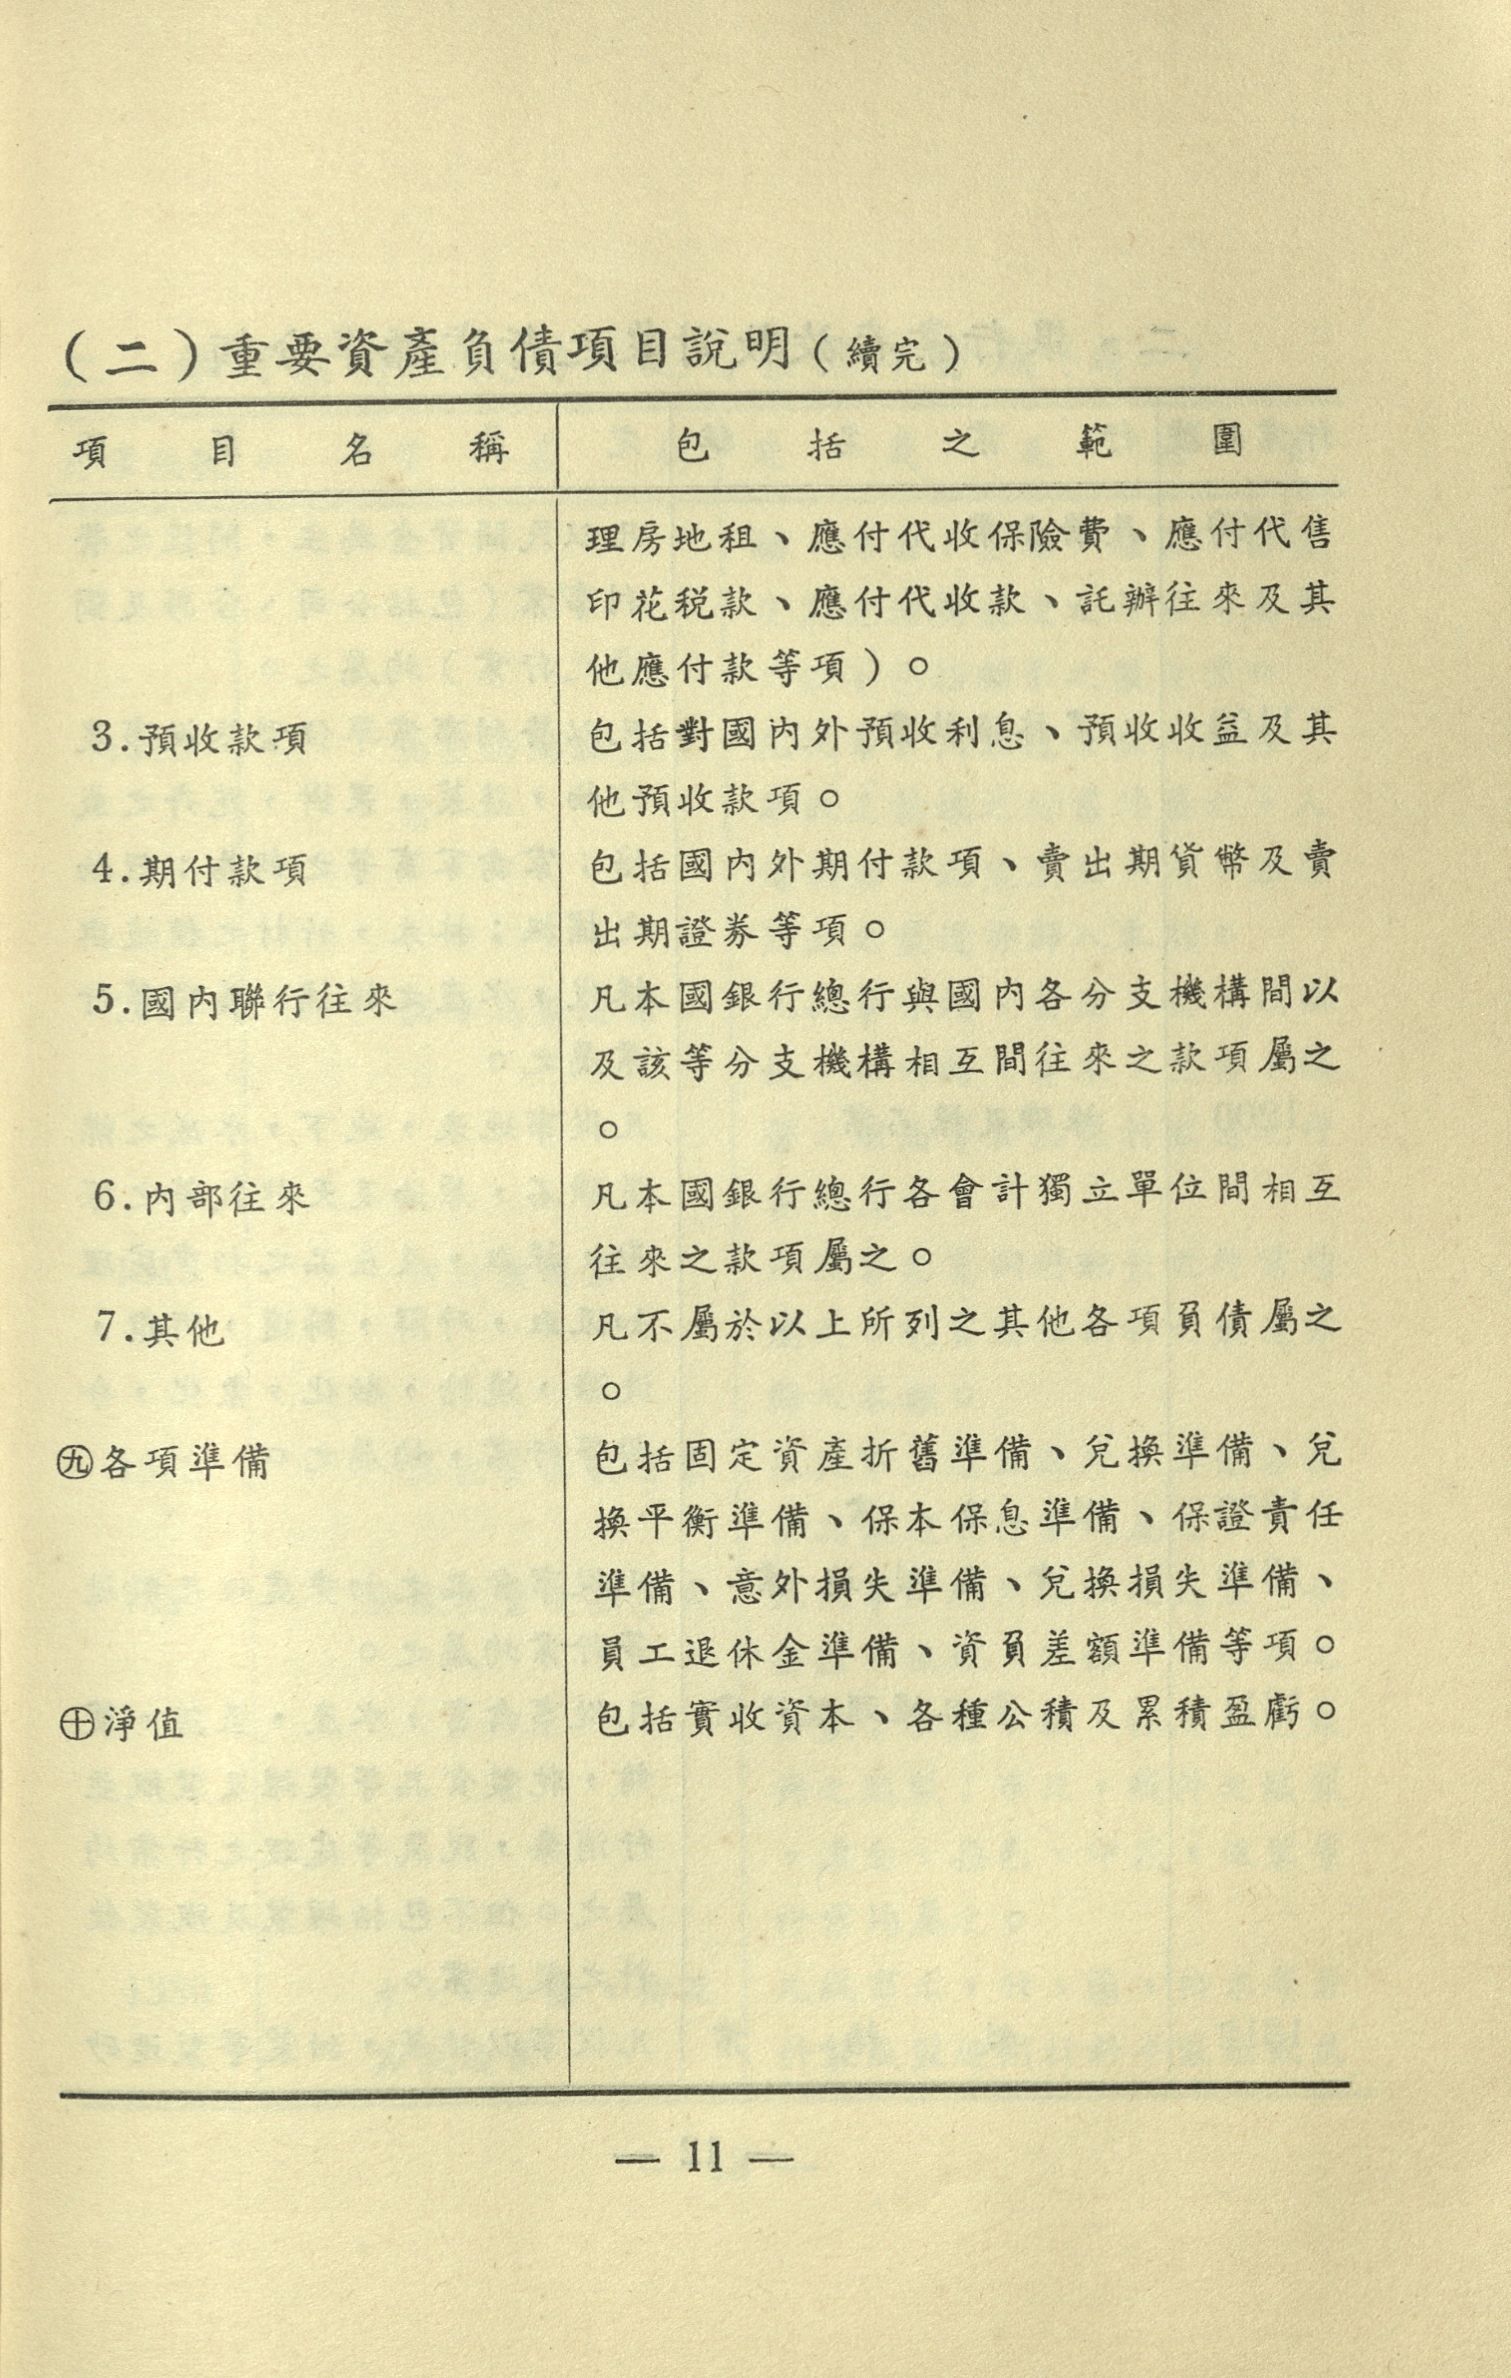 （二）重要資產負債項目說明（續完）
項目名稱　包括之範圍
理房地租、應付代收保險費、應付代售
印花税款、應付代收款、託辦往來及其
他應付款等項）。
3.預收款項　包括對國內外預收利息、預收收益及其
他預收款項。
4.期付款項　包括國內外期付款項、賣出期貨幣及賣
出期證券等項。
5.國內聯行往來　凡本國銀行總行與國內各分支機構間以
及該等分支機構相互間往來之款項屬之
。
6.內部往來　凡本國銀行總行各會計獨立單位間相互
往來之款項屬之。
7.其他　凡不屬於以上所列之其他各項負債屬之
。
㊈各項準備　包括固定資產折舊準備、兌換準備、兌
換平衡準備、保本保息準備、保證責任
準備、意外損失準備、兌換損失準備、
員工退休金準備、資負差額準備等項。
㊉淨值　包括實收資本、各種公積及累積盈虧。
— 11 —